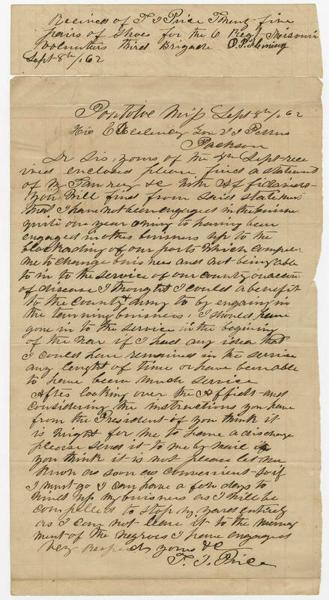 Received of T J Price Thirty five
pairs of Shoes for the 6 Regt Missouri
Volunteers third Brigade
Sept 8th / 62
Pontotoc Miss Sept 8th / 62
His Excellency Gov J J Pettus
Jackson
Dr Sir yours of the 4th Sept rece
ived enclosed please find a statement
of my Tannery &c with affidavits
you will find from said statement
that I have not been engaged in the business
quite one year owing to having been
engaged in other business up to the
blockading of our ports which compelled
me to change business and not being able
to in to the service of our country on account
of disease I thought I could be a benefit
to the country &
 by engaging in
the tanning business. I should have
gone in to the service in the begining
of the war if I had any idea that
I could have remained in the service
any lenght of time or have been able
to have been much service
After looking over the affidavits and
considering the instructions you have
from the President if you think it
is right for me to have a discharge
please send it to me by mail if
you think it is not please let me
know as soon as convenient so if
I must go I can have a few days to
wind up my business as I will be
compelled to stop my yard entirely
as I can not leave it to the manage
ment of the negroes I have engaged
Very Respectfully yours &c
T. J. Price